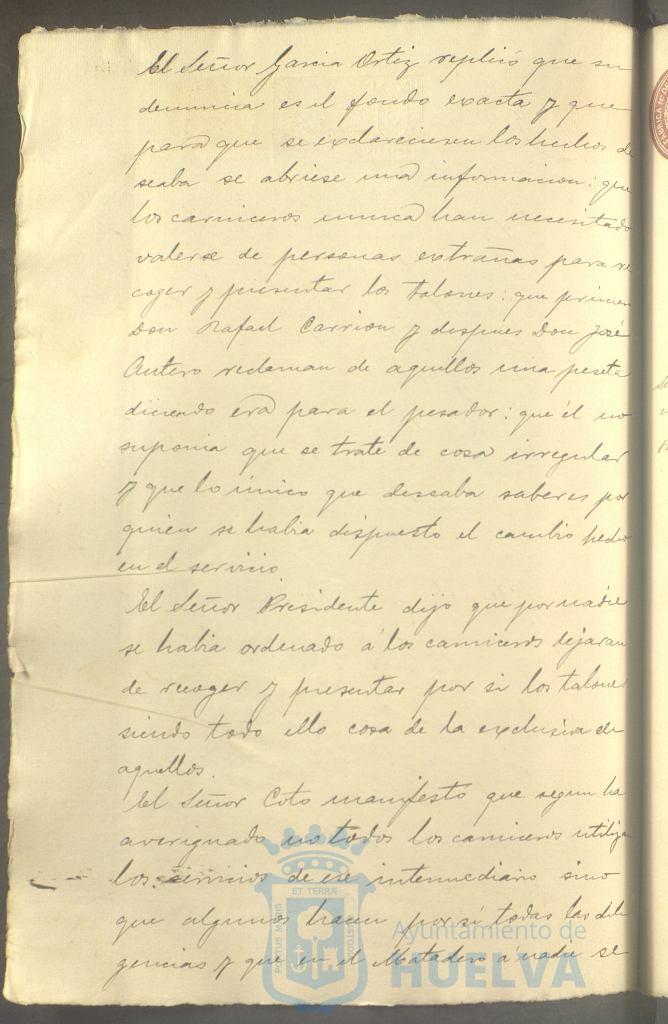 El Señor Garcia Ortiz replicó que su
denuncia es el fondo exacta y que
para que se exclareciesen los hechos de
seaba se abriese una informacion: que
los carniceros nunca han necesitado
valerse de personas extrañas para re
coger y presentar los talones: que primero
Don Rafael Carrion y despues Don José
Antero reclaman de aquellos una peseta
diciendo era para el pesador: que él no
suponia que se trate de cosa irregular
y que lo único que deseaba saber es por
quien se habia dispuesto el cambio hecho
en el servicio.
El Señor Presidente dijo que por nadie
se habia ordenado á los carniceros dejaran
de recoger y presentar por si los talones
siendo todo ello cosa de la exclusiva de
aquellos.
El Señor Coto manifestó que segun ha
averiguado no todos los carniceros utiliza
los servicios de ese intermediario sino
que algunos hacen por si todas las dili
gencias y que en el Matadero á nadie se
PORTUS MARIS
ET TERRÆ
CUSTODIA
Ayuntamiento de
HUELVA